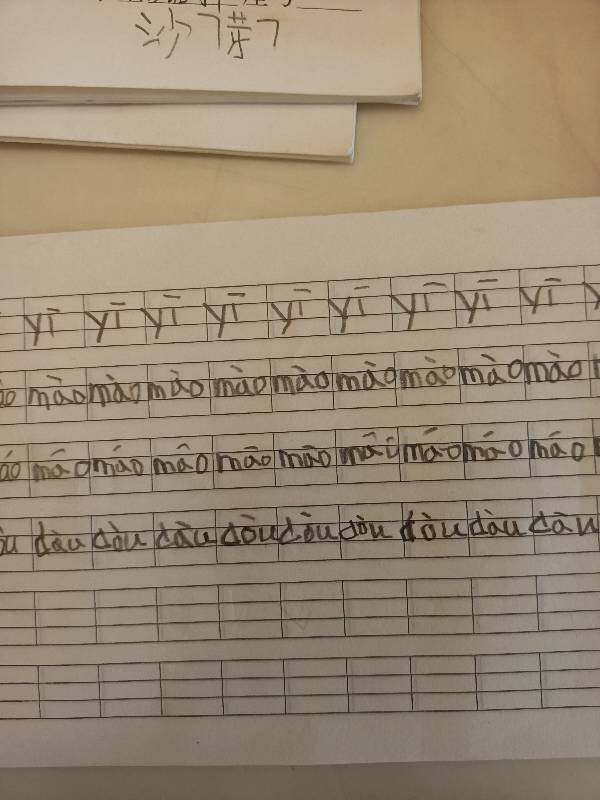 yī yī yī yī yī yī yī yī yī
ào mào mào mào mào mào mào mào mào mào
áo máo máo máo māo māo máo máo máo máo
òu dòu dòu dòu dòu dòu dòu dòu dòu dòu